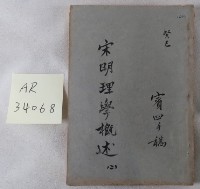 AR
34068
癸巳
賓四手稿
宋明理學概述